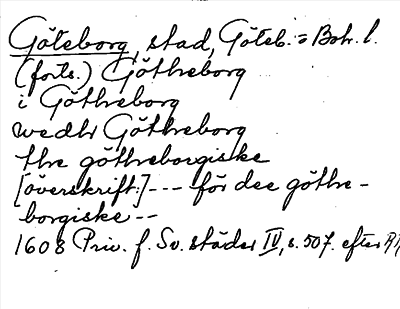 Göteborg, stad, Göteb. = Boh. l.
(forts.) Götheborg
i Götheborg
wedh Götheborg
the götheborgiske
[överskrift:] --- för dee göthe-
borgiske --
1608 Priv. f. Sv. städer IV, s. 507. efter RR